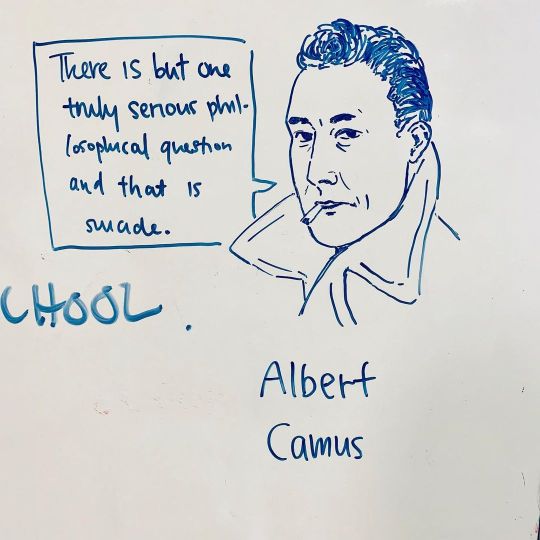 There is but one
truly serious phil-
losophical question
and that is
suicide.
CHOOL.
Albert
Camus